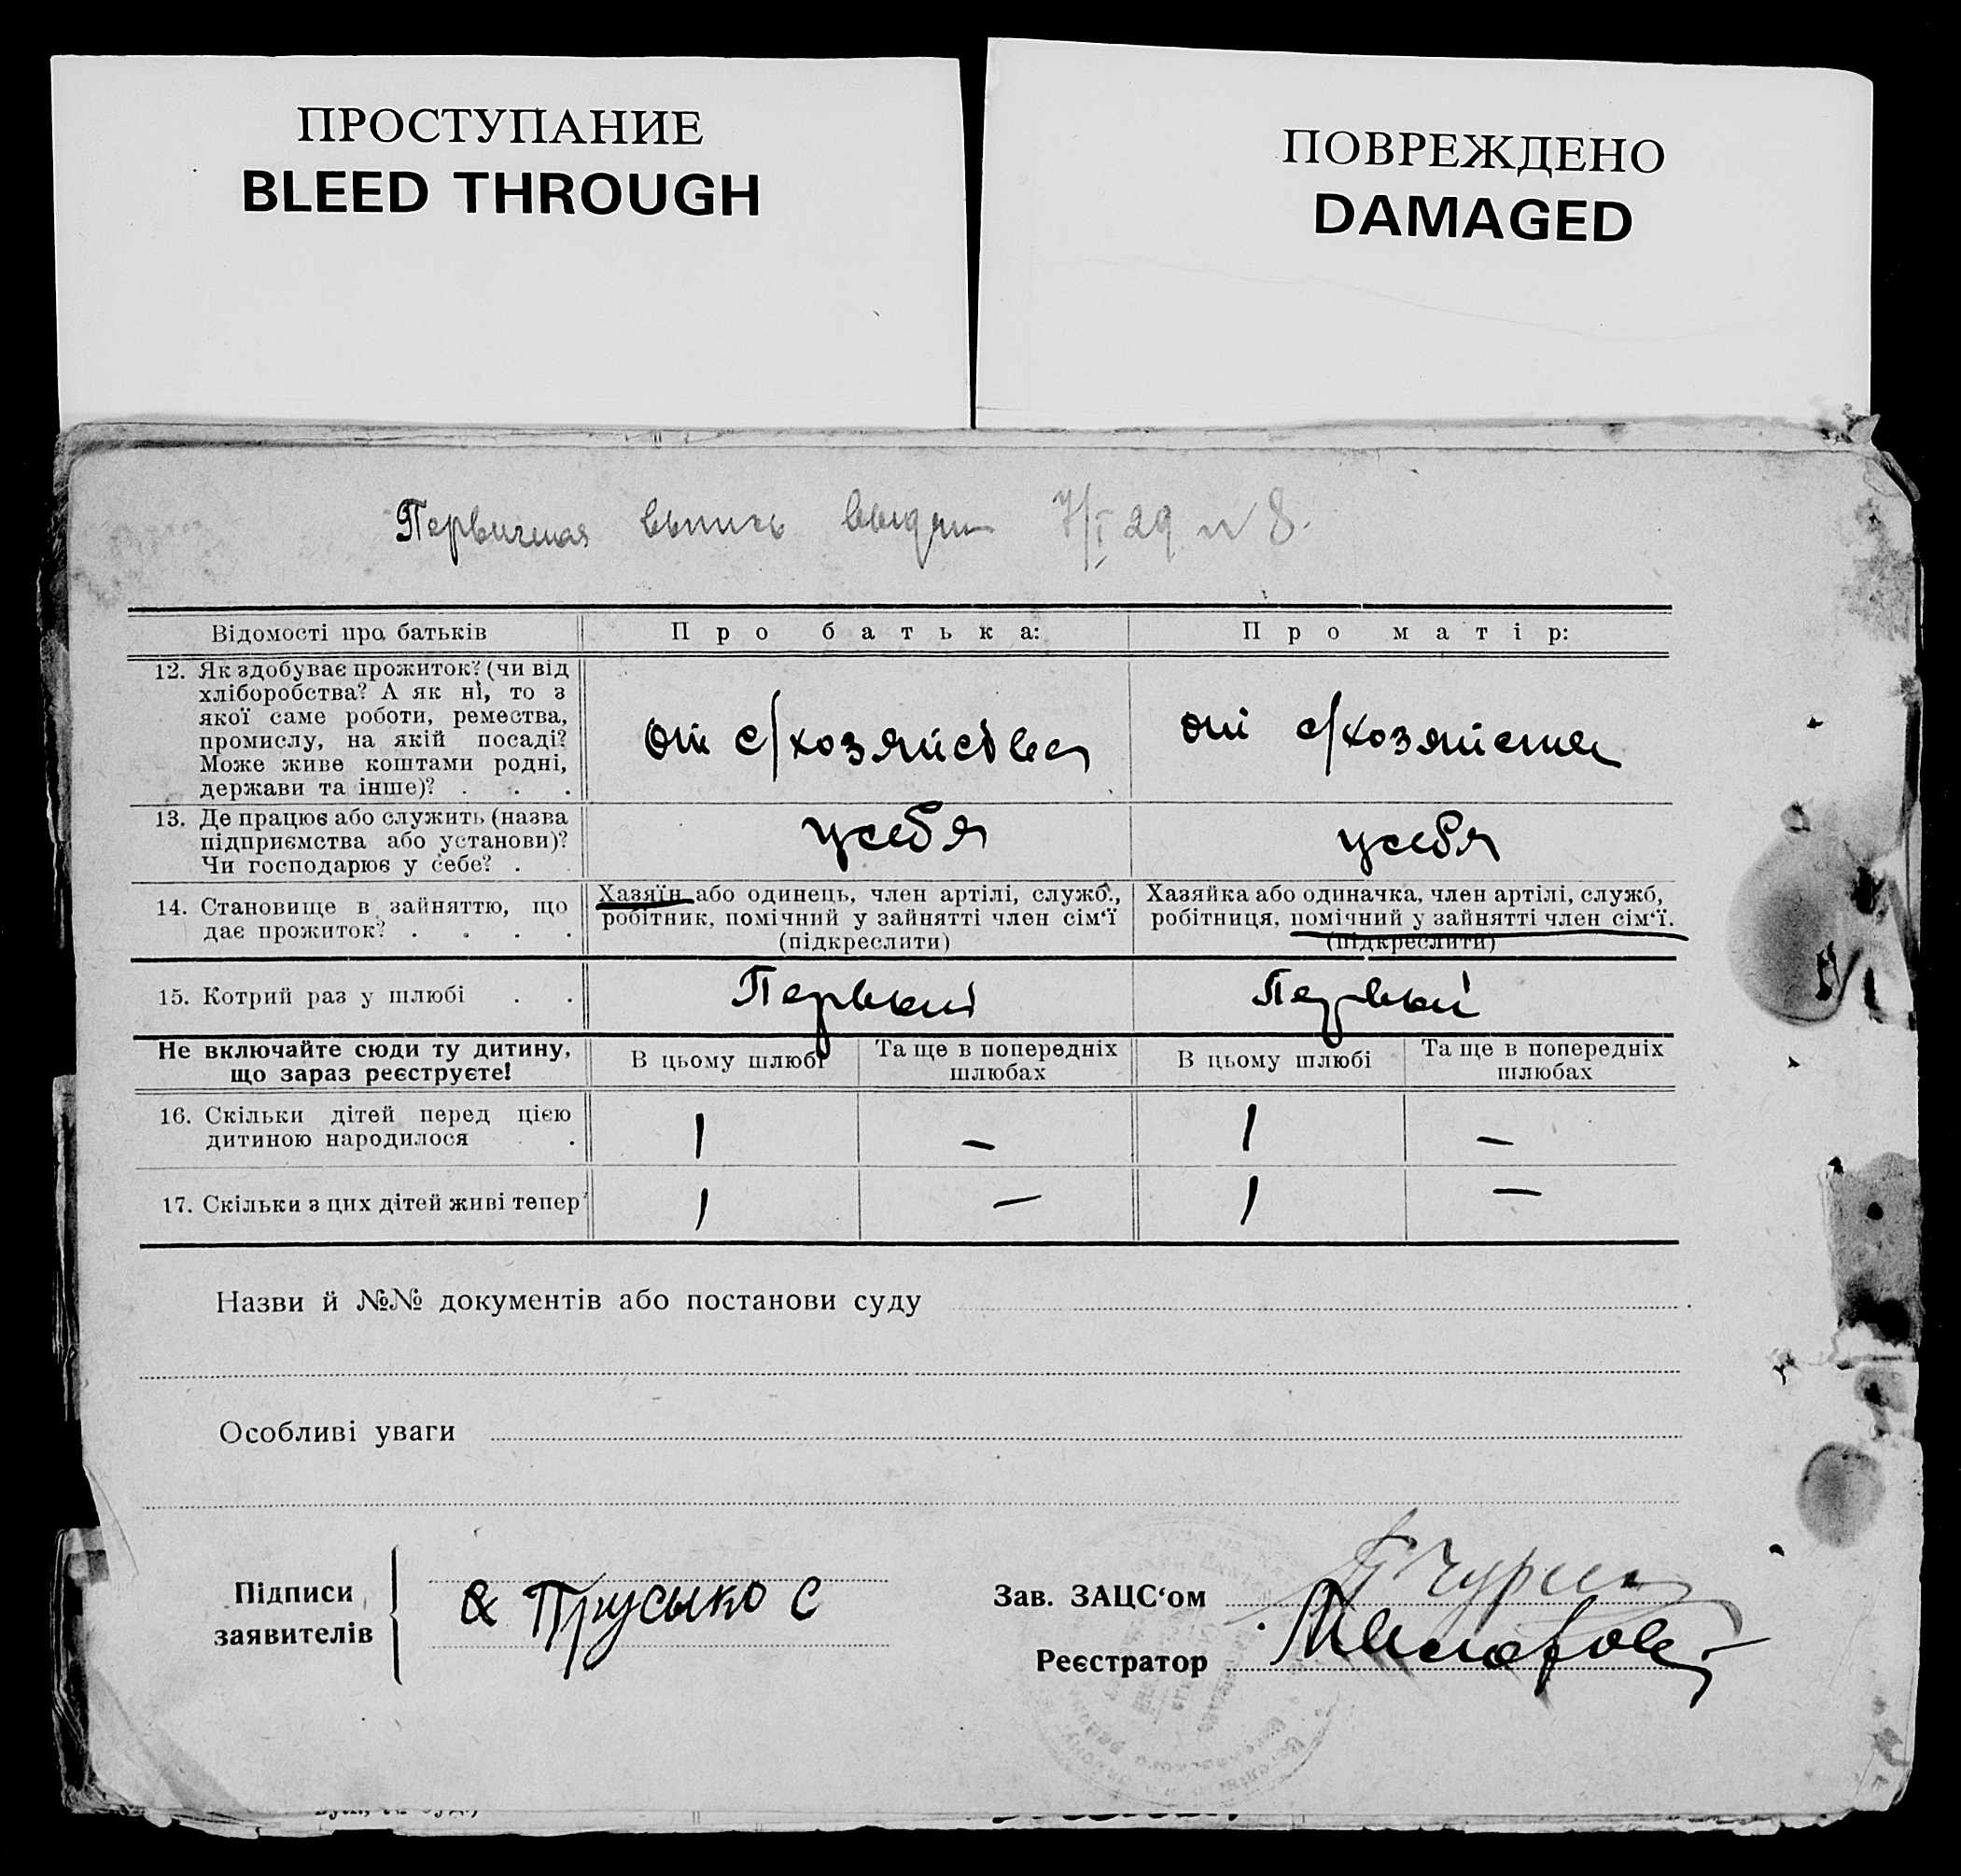 ПРОСТУПАНИЕ
BLEED THROUGH
ПОВРЕЖДЕНО
DAMAGED
Первичная выпись выдан 7/I 29 N 8.
Відомості про батьків
Про батька:
Про матір:
12. Як здобуває прожиток? (чи від
хліборобства? А як ні, то з
якої саме роботи, ремества,
промислу, на якій посаді?
Може живе коштами родні,
держави та інше)? . . .
от с/хозяйства
от с/хозяйства
13. Де працює або служить (назва
підприємства або установи)?
Чи господарює у себе? .
у себя
у себя
14. Становище в зайняттю, що
дає прожиток? . . . .
Хазяїн або одинець, член артілі, служб.,
робітник, помічний у зайнятті член сім'ї
(підкреслити)
Хазяйка або одиначка, член артілі, служб,
робітниця, помічний у зайнятті член сім'ї.
(підкреслити)
15. Котрий раз у шлюбі . .
Первый
Первый
Не включайте сюди ту дитину,
що зараз реєструєте!
В цьому шлюбі
Та ще в попередніх
шлюбах
В цьому шлюбі
Та ще в попередніх
шлюбах
16. Скільки дітей перед цією
дитиною народилося .
1 — 1 —
17. Скільки з цих дітей живі тепер
1 — 1 —
Назви й №№ документів або постанови суду
Особливі уваги
Підписи
заявителів
Зав. ЗАЦС'ом
Реєстратор